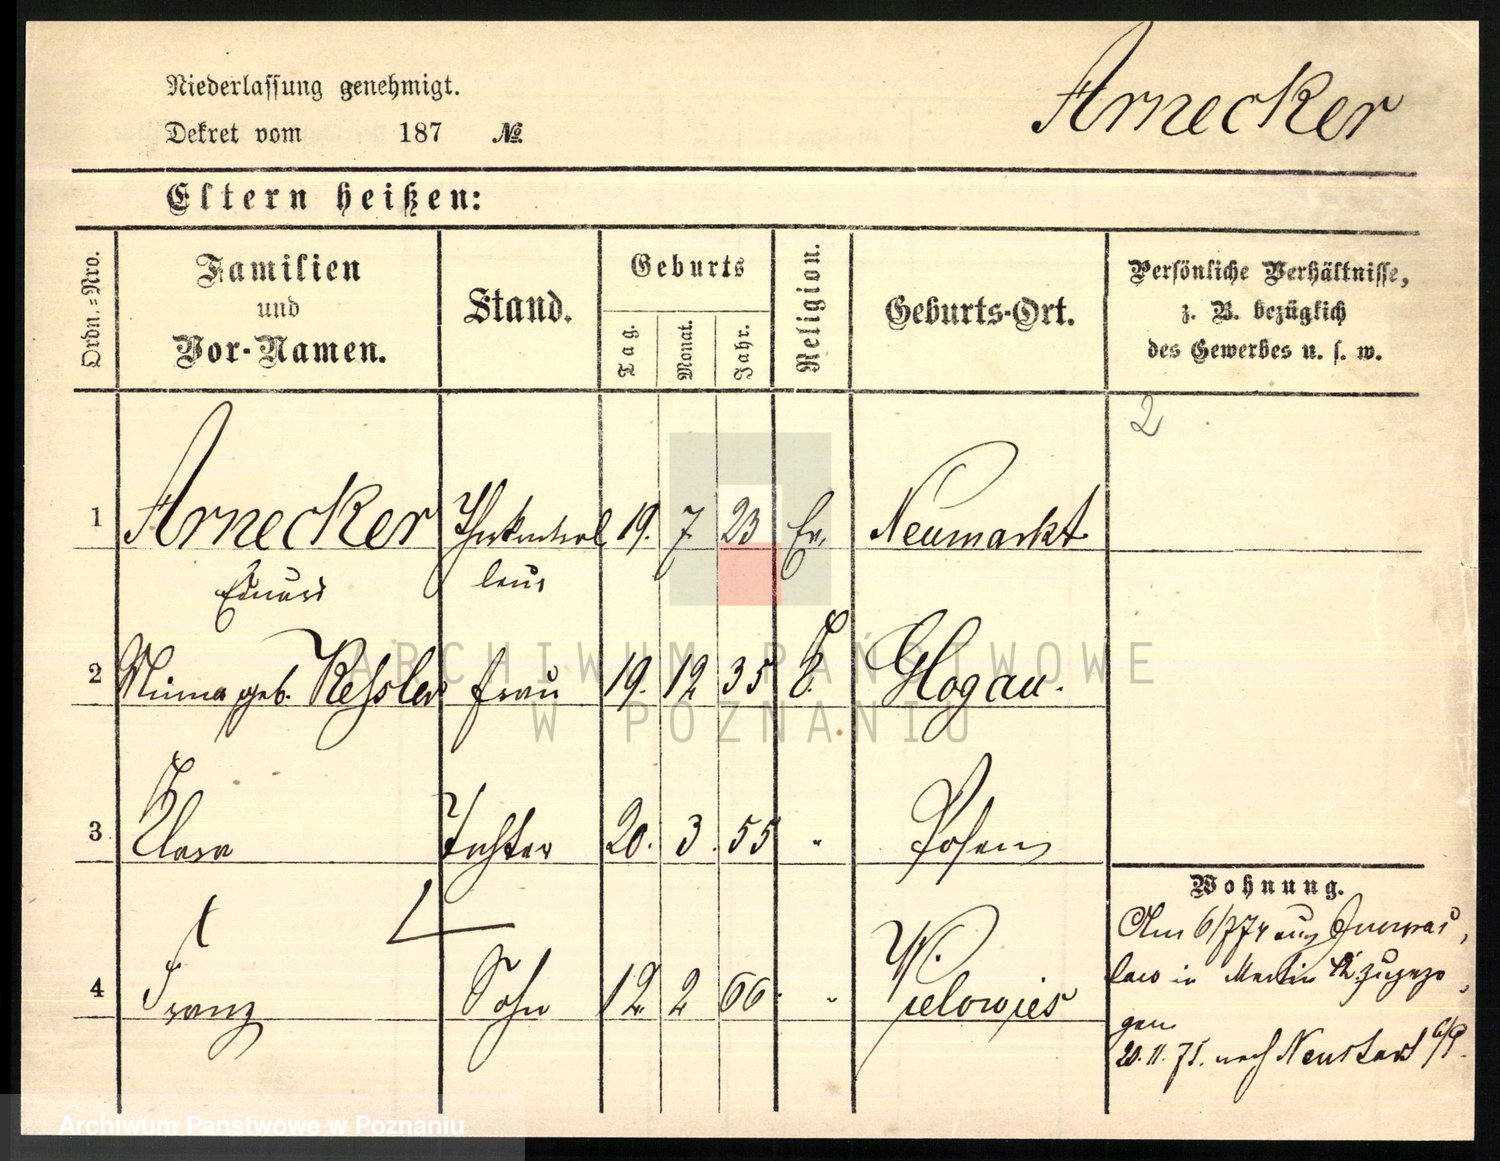 Arnecker
Niederlassung genehmigt.
Dekret vom 187 №
Eltern heißen:
Ordn.=Nro.
Familien
und
Vor-Namen.
Stand.
Geburts
Tag.
Monat.
Jahr.
Religion.
Geburts-Ort.
Persönliche Verhältnisse,
z. B. bezüglich
des Gewerbes u. s. w.
2
1 Arnecker 19. 7 23 Ev. Neumarkt
Eduard
2 Minna geb. Kessler Frau 19. 12 35 K. Glogau.
3 Klara Tochter 20. 3. 55 " Posen
4 Franz Sohn 12. 2 66 " Wielowies
Wohnung.
Am 6/7 74 aus Inowraz,
law in Martin 12 zugezo,
gen
20.11.75. nach Neustadt
ARCHIWUM PAŃSTWOWE
W POZNANIU
Archiwum Państwowe w Poznaniu